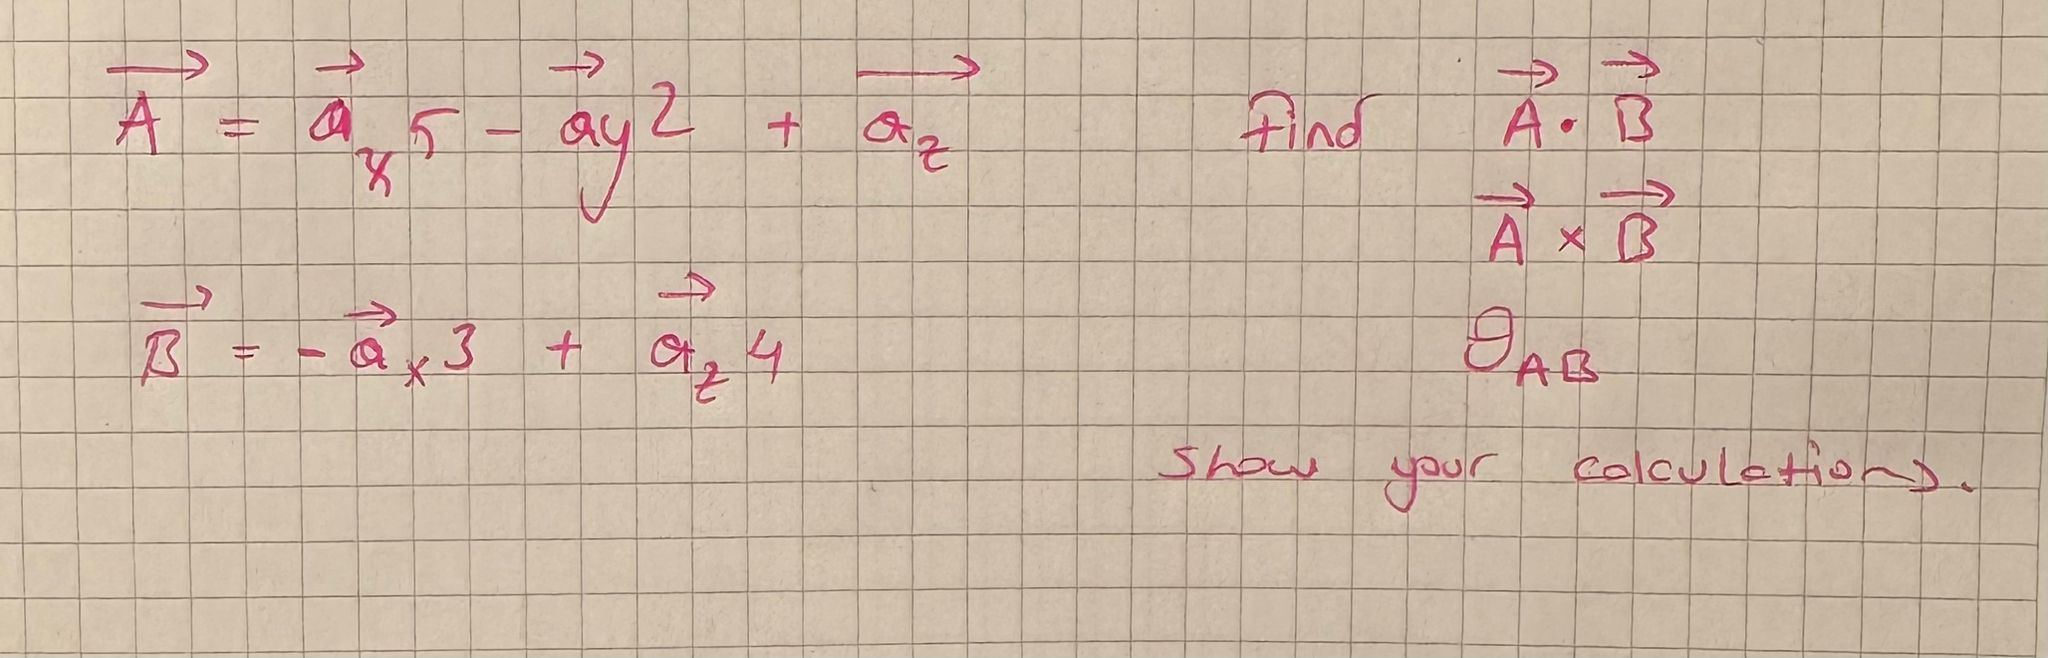 A⃗ = a⃗ₓ5 − a⃗y2 + a⃗z
B⃗ = −a⃗ₓ3 + a⃗z4
find A⃗ · B⃗
A⃗ × B⃗
θAB
show your calculations.